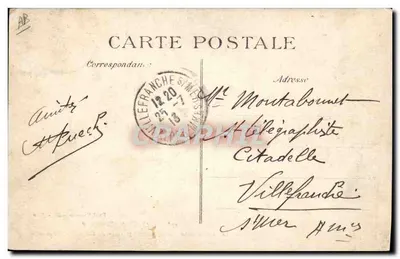 AB
CARTE POSTALE
Correspondance
Adresse
VILLEFRANCHE S/MER
12 20
25 -7
13
Amitié
Mr Montabonnet
télégraphiste
Citadelle
Villefranche
s/Mer Ames